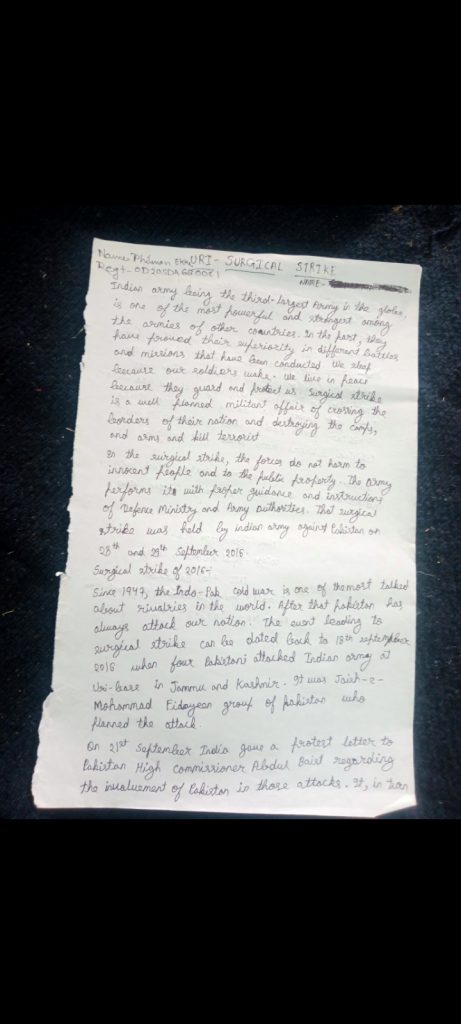 Name- Phdmon Ekk URI- SURGICAL STRIKE
Regt- OD20SDA660061 NAME-
Indian army being the third-largest Army in the globe,
is one of the most powerful and strongest among
the armies of other countries. In the part, they
have proved their superiority in different battles
and missions that have been conducted We sleep
because our soldiers wake. We live in peace
because they guard and protect us. Surgical strike
is a well planned militant affair of crossing the
boorders of their nation and destroying the camps,
and arms and kill terrorist
In the surgical strike, the forces do not harm to
innocent people and to the public property. The Army
performs its with proper guidance and instructions
of Defence Ministry and Army authorities. That surgical
strike was held by indian army against Pakistan on
28th and 29th September 2016.
Surgical strike of 2016:-
Since 1947, the Indo-Pak cold war is one of the most talked
about rivalries in the world. After that pakistan has
always attack our nation. The event leading to
surgical strike can be dated back to 18th september
2016 when four Pakistani attacked Indian army at
Uri-base in Jammu and Kashmir. It was Jaish-e-
Mohammad Fidayeen group of pakistan who
planned the attack.
On 21st September India gave a protest letter to
Pakistan High commissioner Abdul Basit regarding
the involvement of Pakistan in those attacks. It, in turn